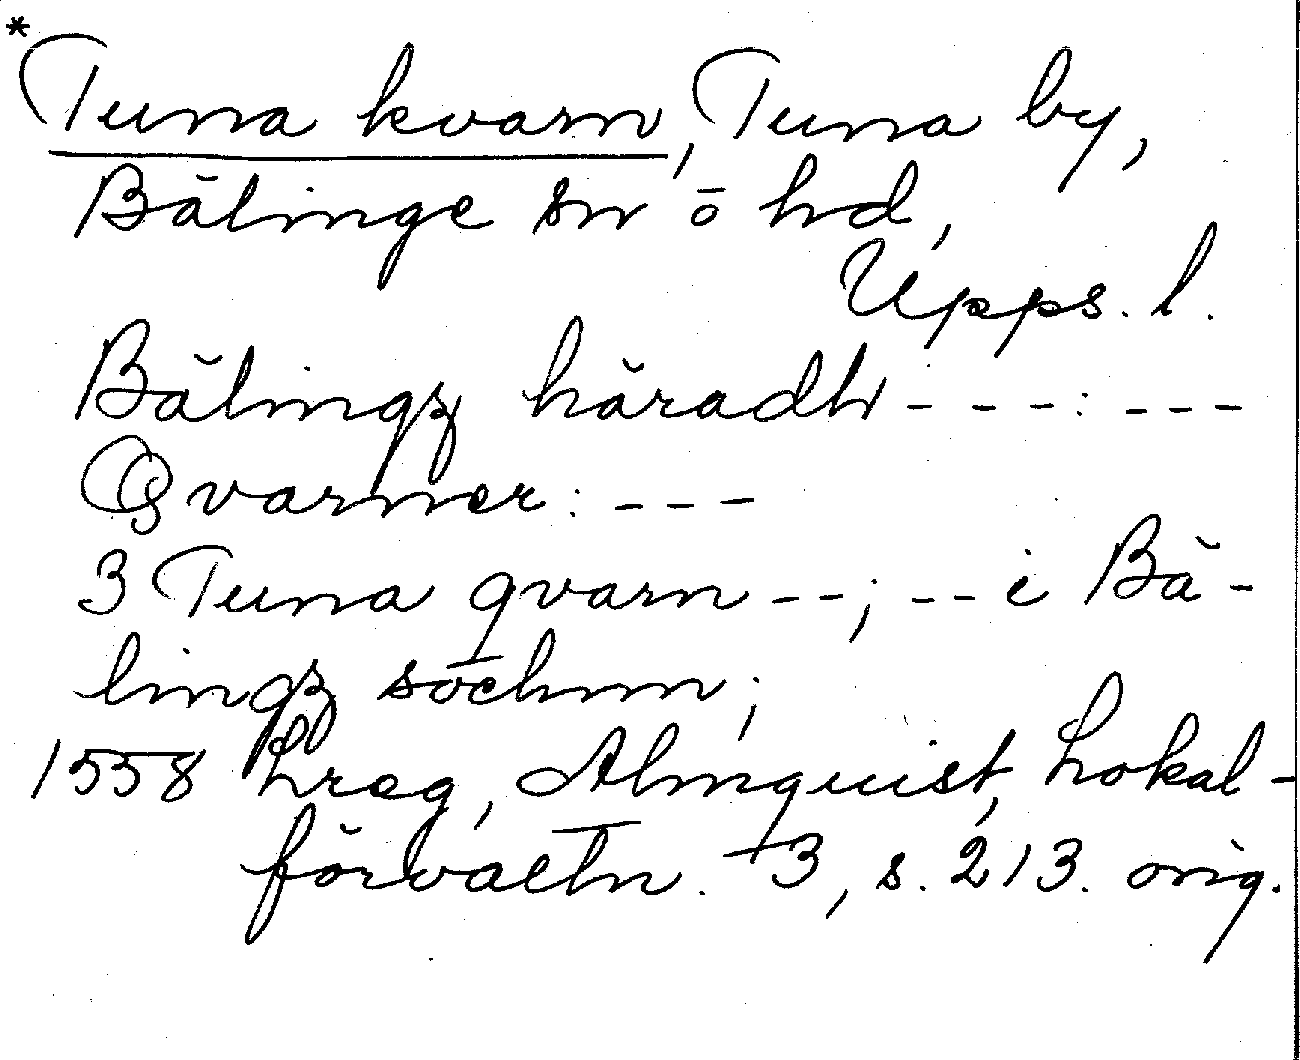 *Tuna kvarn, Tuna by,
Bälinge sn o hd,
Upps. l.
Bälingz häradh - - - : - - -
Qvarner : - - -
3 Tuna qvarn - - ; - - i Bä-
lingz sochnn ;
1558 Lreg, Almquist, Lokal-
förvaltn. 3, s. 213. orig.